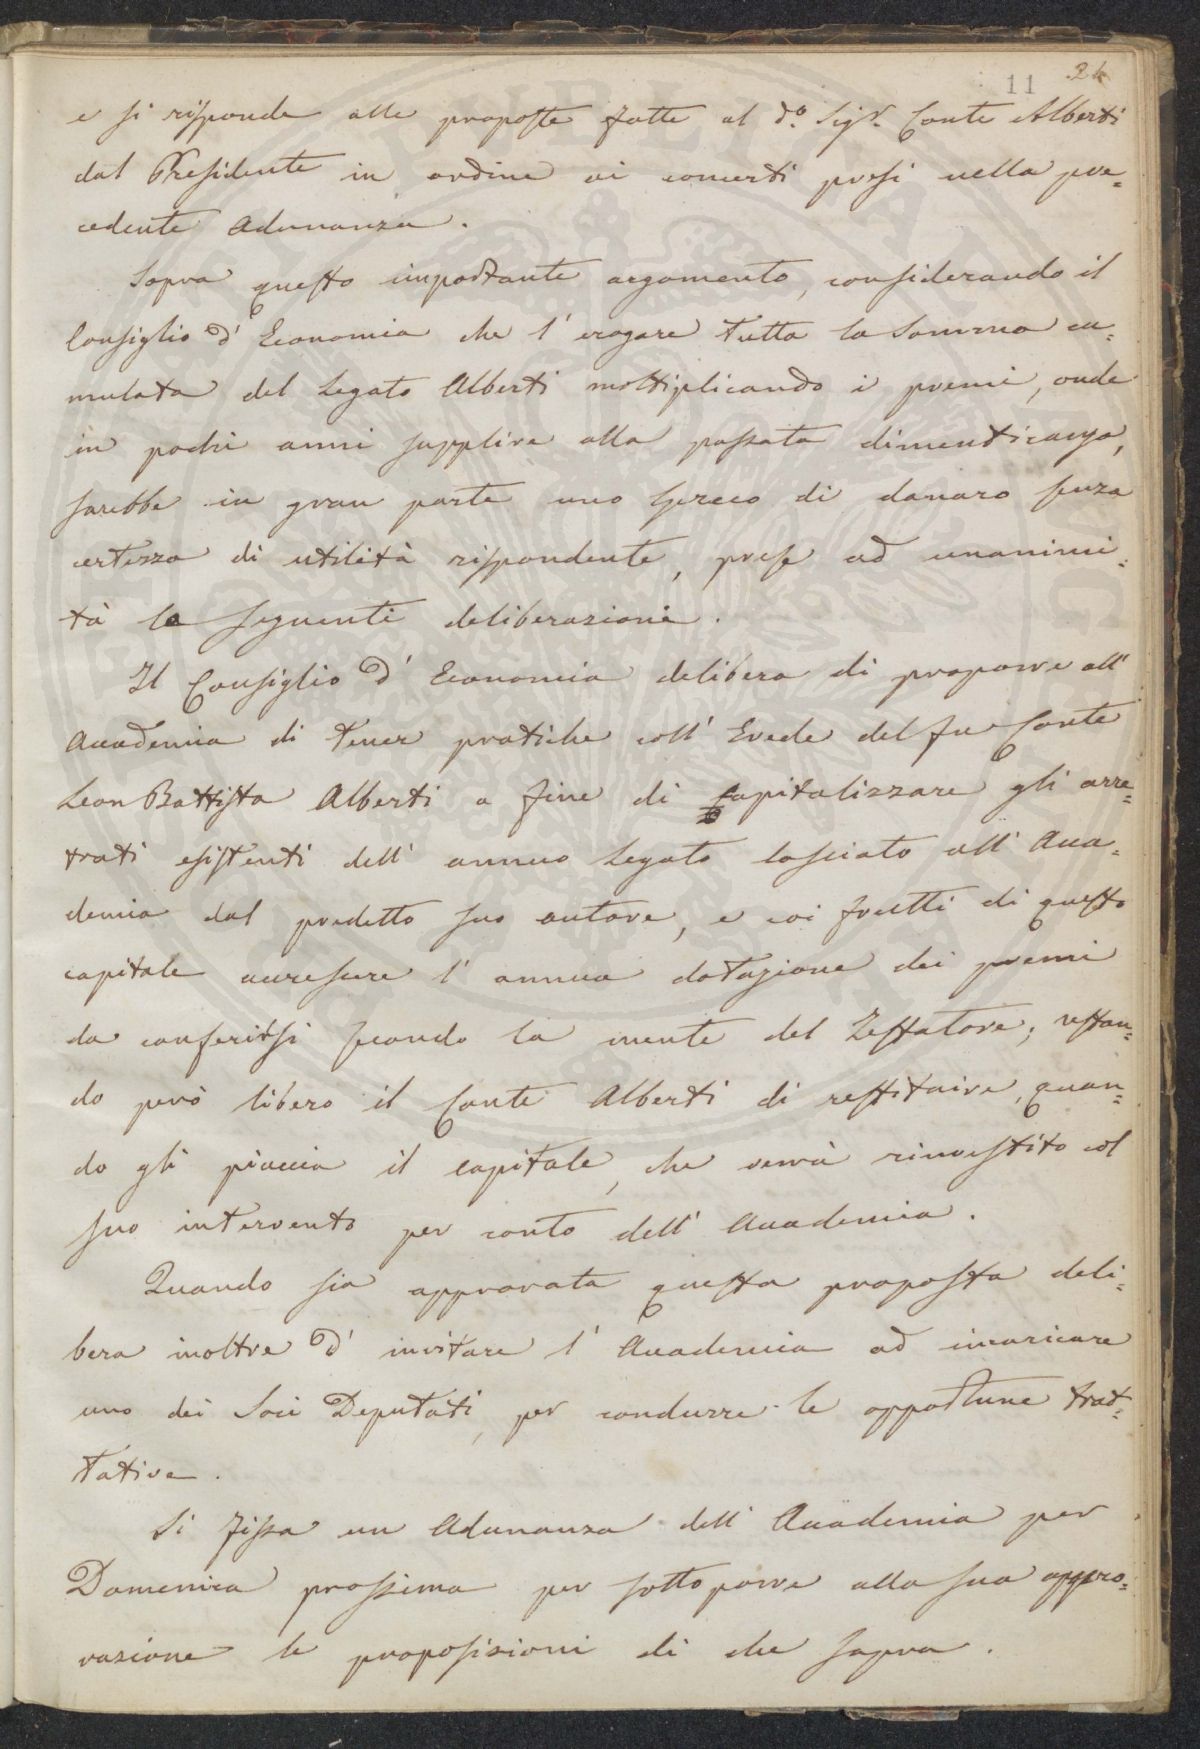 11 24
e si risponde alle proposte fatte al d.º Sigr. Conte Alberti
dal Presidente in ordine ai concerti presi nella pre=
cedente Adunanza.
Sopra questo importante argomento, considerando il
Consiglio d' Economia che l' erogare tutta la Somma cu=
mulata del Legato Alberti moltiplicando i premi, onde
in pochi anni supplire alla passata dimenticanza,
sarebbe in gran parte uno spreco di danaro senza
certezza di utilità rispondente, prese ad unanimi=
tà le seguenti deliberazioni.
Il Consiglio d' Economia delibera di proporre all'
Accademia di tener pratiche coll' Erede del fu Conte
Leon Battista Alberti a fine di capitalizzare gli arre=
trati esistenti dell' annuo Legato lasciato all' Acca=
demia dal predetto suo autore, e coi frutti di questo
capitale accrescere l' annua dotazione dei premi
da conferirsi secondo la mente del Testatore; restan=
do però libero il Conte Alberti di restituire, quan=
do gli piaccia il capitale, che verrà rinvestito col
suo intervento per conto dell' Accademia.
Quando sia approvata questa proposta deli=
bera inoltre d' invitare l' Accademia ad incaricare
uno dei Soci Deputati, per condurre le opportune trat=
tative.
Si fissa un Adunanza dell' Accademia per
Domenica prossima per sottoporre alla sua appro=
vazione le proposizioni di che sopra.